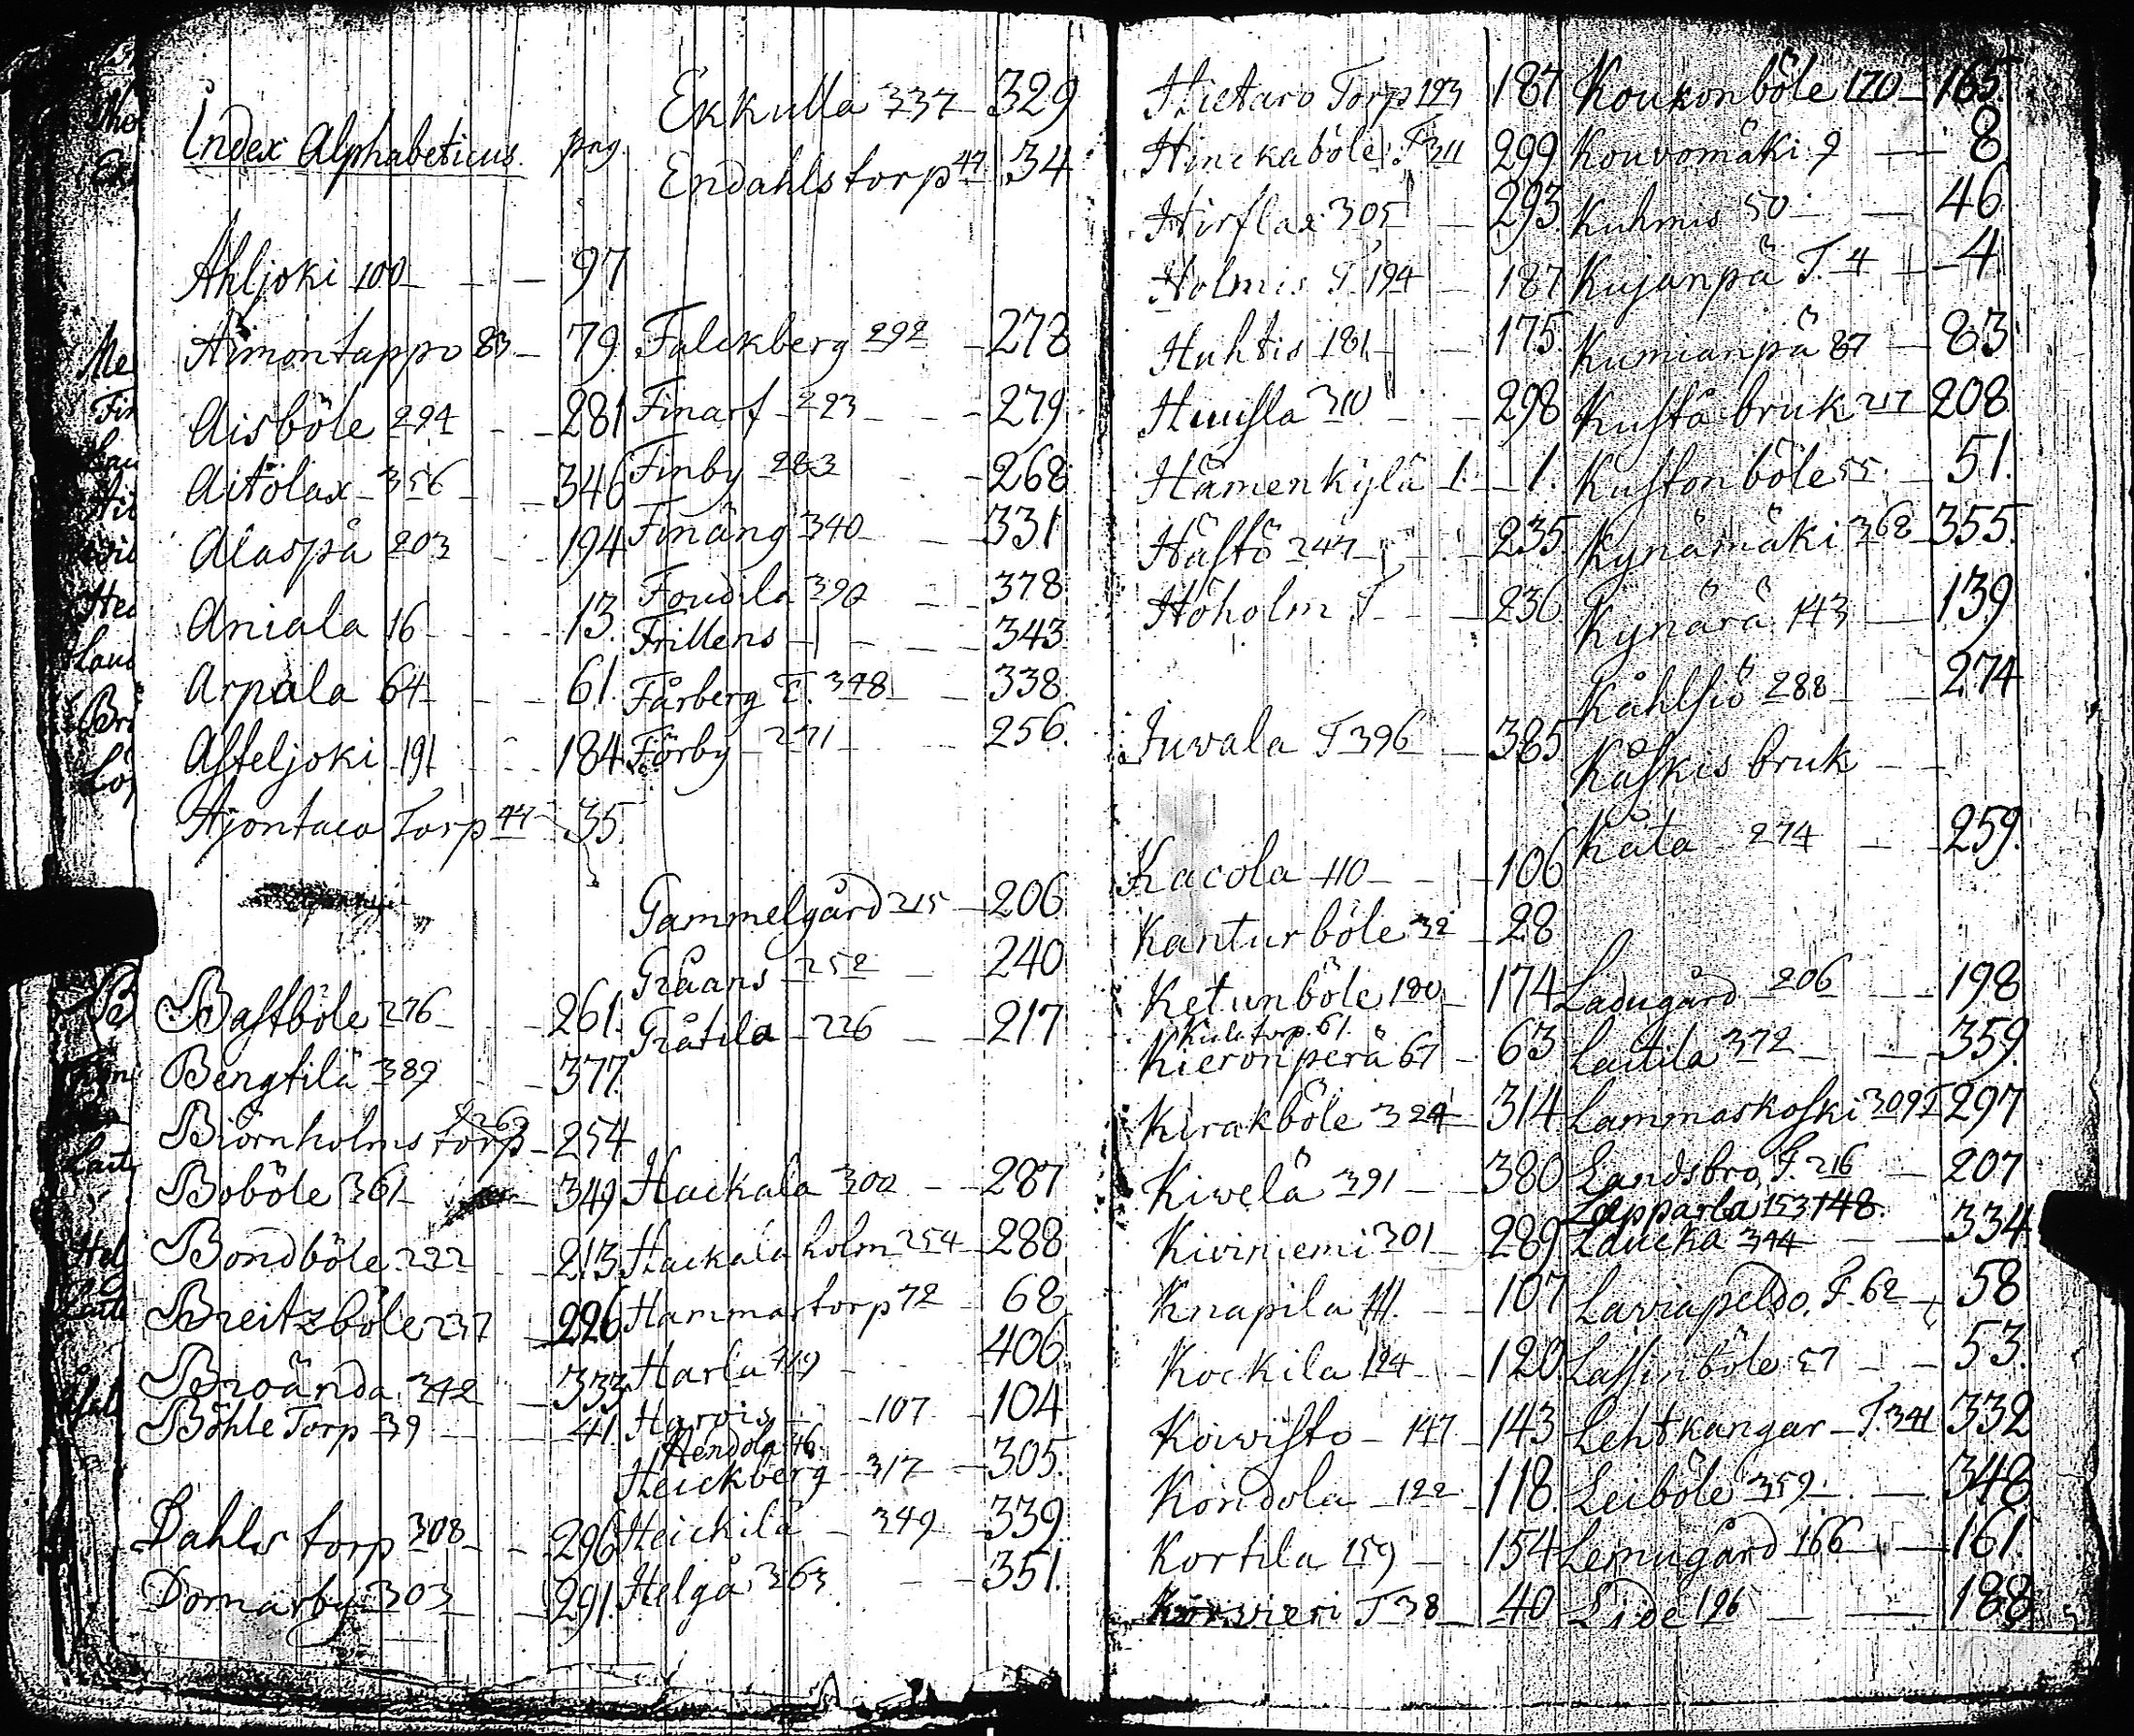 Index Alphabeticus. pag.
Ahljoki 100 - - - 97
Aimontappo 83 - 79.
Aisböle 294 - - 281
Aitölax 356 - - 346
Alaspä 203 - - 194
Aniala 16 - - - 13.
Arpala 64 - - - 61.
Asteljoki 191 - - - 184.
Torp 44 - 35.
Bastböle 276 - - 261.
Bengtilä 389 - - 377.
Biörnholms torp - 254
Boböle 361 - - 349
Bondböle 222 - - 213
Breitzböle 237 - 226
Broända 342 - 333
Böhle Torp 39 - - - 41.
Dahls torp 308 - - 296
Dornarby 303 - - 291.
Ekkulla 337 - 329
Endahls torp 44 34
Falckberg 292 - 278
Finarf - 293 - - - 279.
Finby - 283 - - 268.
Finäng 340 - - - 331
Foudila 390 - - 378
Frillens - - - - 343.
Fårberg T. 348 - - 338.
Förby - 271 - - - 256.
Gammelgård 215 - 206.
Gråans - 252 - 240
Gråtila - 226 - - 217
Hackala 300 - - 287
Hackala holm 254 - 288
Hammartorp 72 - 68.
Harla 419 - - - 406
Harvis - 107 - 104
Hendola 46.
Heickberg - 317 - - 305.
Heickilä - 349 - 339.
Helgå 363. - - 351.
Hietaro Torp 193 187
Hinckaböle T 311 299
Hirflax 305 - 293.
Holmis T. 194 - 187
Huhtis 181 - - 175.
Huusla 310 - - 298
Hämenkylä 1. - 1.
Hästö 244 - - - 235.
Höholm T - - - 236.
Juvala T 396 - 385
Kacola 110 - - - 106
Kanturböle 32 - 28
Ketunböle 180 - 174
torp. 61.
Kieronperä 67 - 63
Kirakböle 324 - 314
Kiwelä 391 - - 380
Kiviniemi 301 - 289
Knapila 111. - - 107
Kockila 124 - - 120.
Koiwisto - 147 - 143
Kondola - 122 - 118.
Kortila 159 - - 154
T 38 - 40
Koukonböle 170 - 165.
Kouvomäki 9 - - 8
Kuhmis 50 - - 46
Kujanpä T. 4 - - 4.
Kumianpä 87 - 83
Kustå bruk 217 - 208.
Kustonböle 55. - 51.
Kynämäki 368 - 355.
Kynärä 143 - 139
Kåhlsiö 288 - - 274
Kåskis bruk - -
Kåta - 274 - - 259.
Ladugård - 206 - - 198
Laitila 372 - - - 359.
Lammaskoski 309 T 297
Landsbro, T. 216 - 207
Lapparla 153 148.
Laucka 344 - - 334
Lauriapeldo, T. 62 - 58
Lassinböle 57 - - 53.
Lehtkangar - T. 341 332
Leiböle 359 - - 348
Lemugård 166 - 161.
Lide 196 - - 188